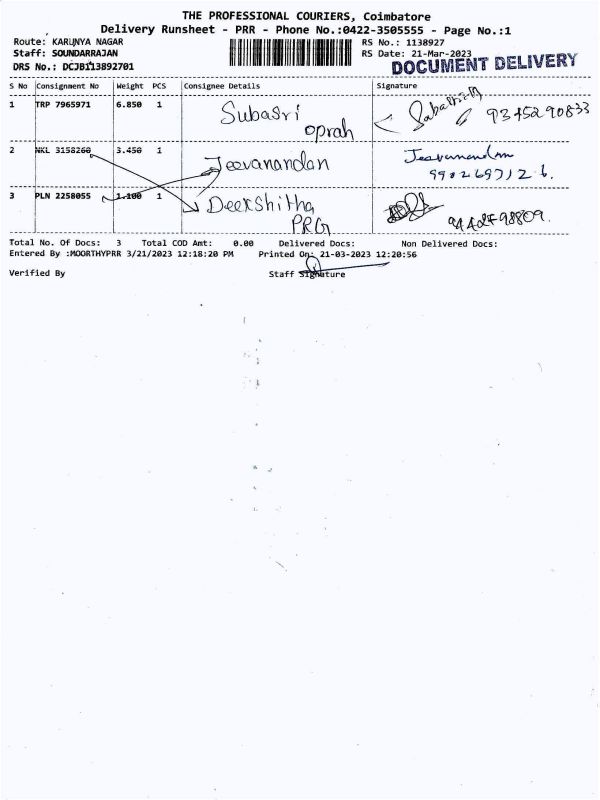 THE PROFESSIONAL COURIERS, Coimbatore
Delivery Runsheet - PRR - Phone No.:0422-3505555 - Page No.:1
Route: KARUNYA NAGAR RS No.: 1138927
Staff: SOUNDARRAJAN RS Date: 21-Mar-2023
DRS No.: DCJB113892701 DOCUMENT DELIVERY
S No Consignment No Weight PCS Consignee Details Signature
1 TRP 7965971 6.850 1 Subasri 9345290833
oprah
2 NKL 3158260 3.450 1 Jeevanandan Jeevanandam
9902697126.
3 PLN 2258055 1.100 1 Deekshitha
PRG
Total No. Of Docs: 3 Total COD Amt: 0.00 Delivered Docs: Non Delivered Docs:
Entered By :MOORTHYPRR 3/21/2023 12:18:20 PM Printed On: 21-03-2023 12:20:56
Verified By Staff Signature